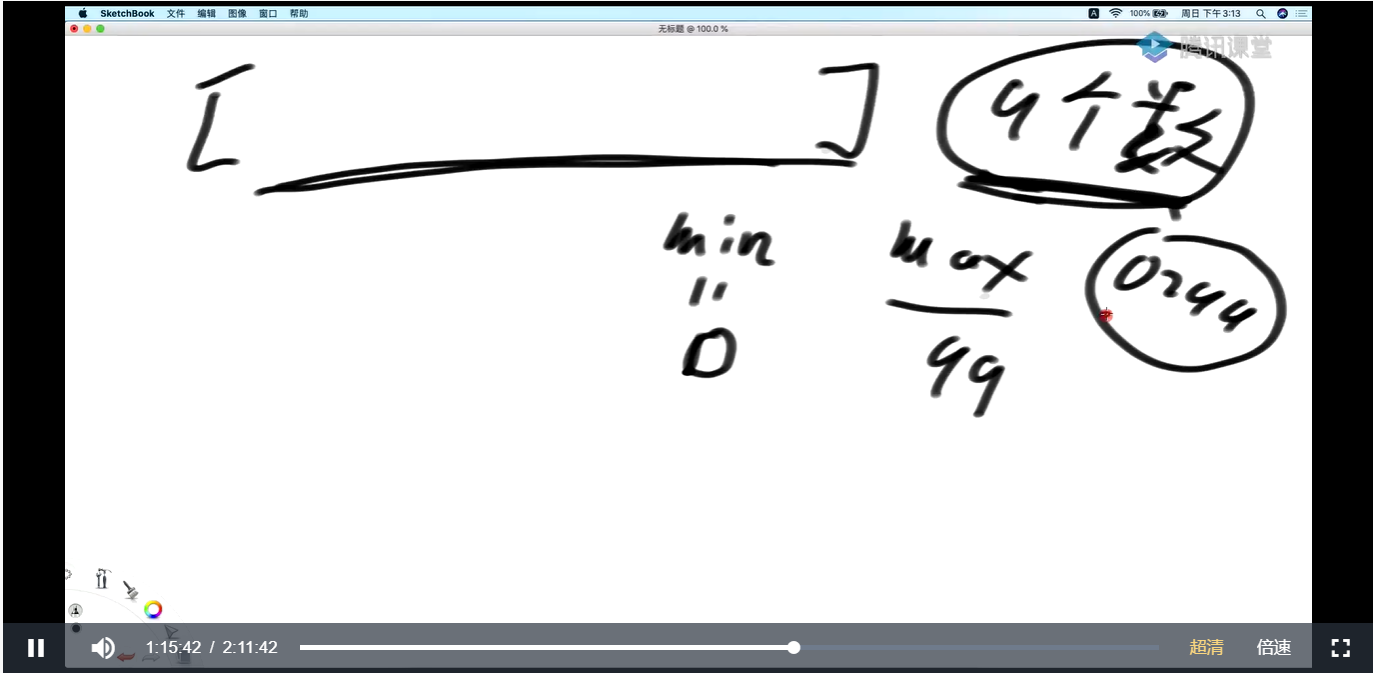 SketchBook 文件 编辑 图像 窗口 帮助 A 100% 周日下午3:13
无标题 @ 100.0 %
腾讯课堂
[ ] 9个数
min max 0~99
=
0 99
1:15:42 / 2:11:42 超清 倍速